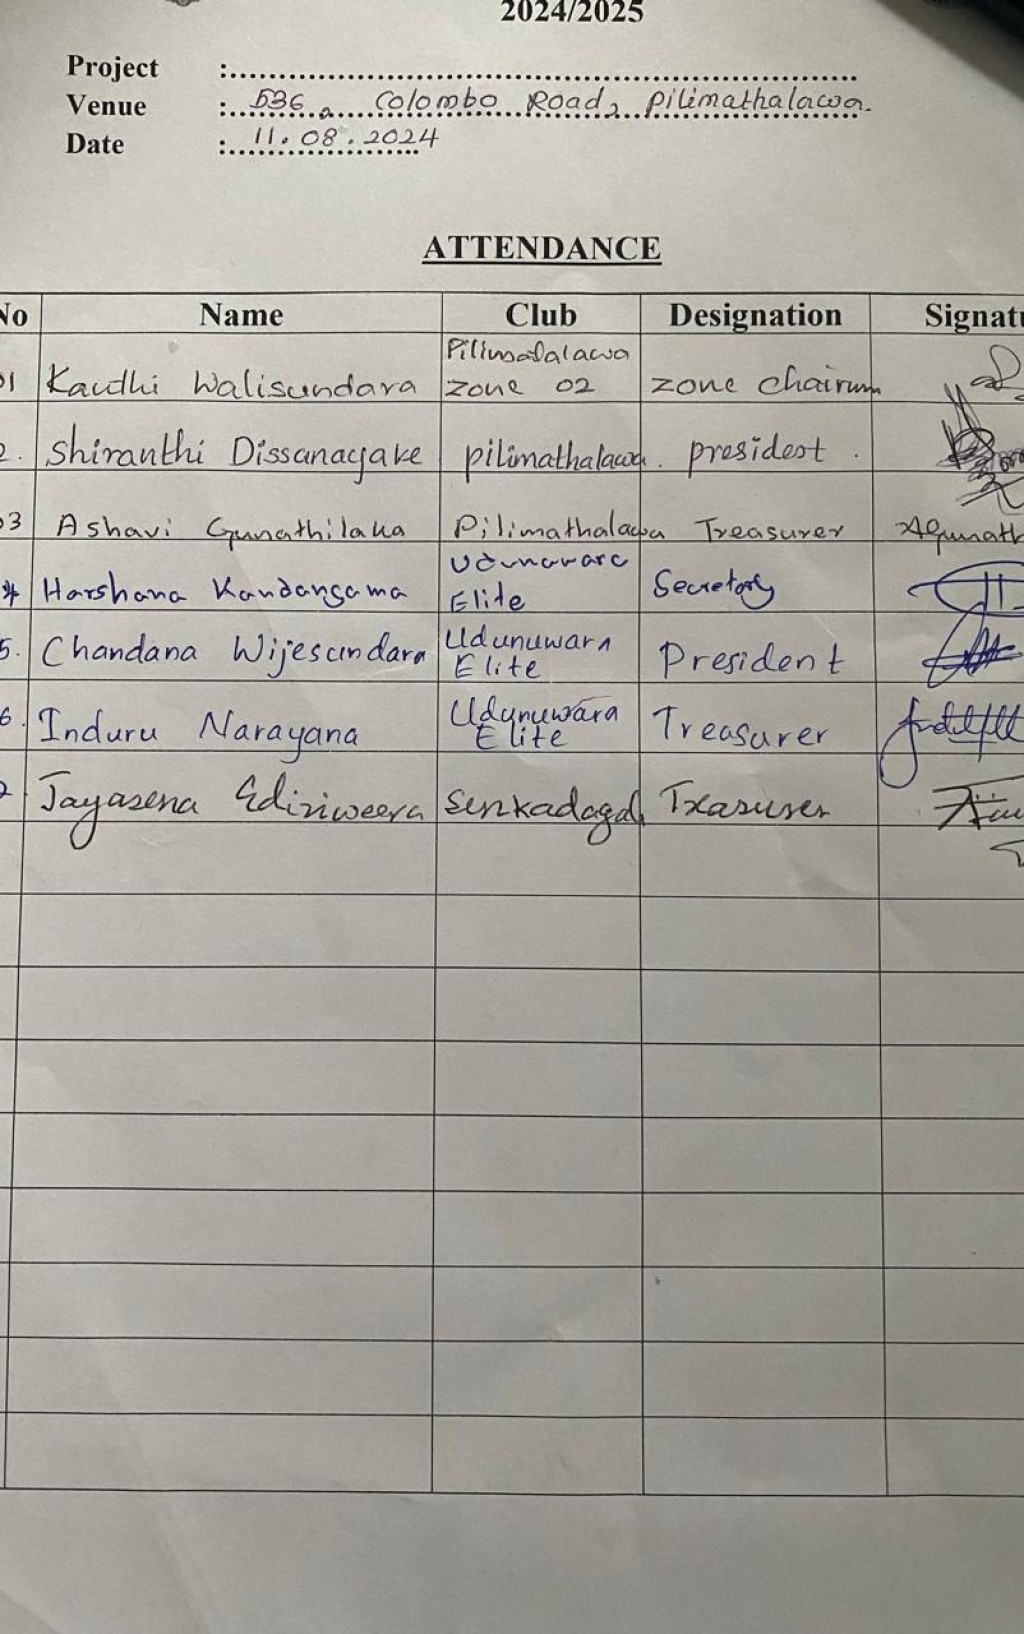 2024/2025
Project :
Venue : 536, Colombo Road, Pilimathalawa.
Date : 11.08.2024
ATTENDANCE
No Name Club Designation Signatu
01 Kaudhi Walisundara Pilimadalawa zone 02 zone chairman
2. Shiranthi Dissanayake pilimathalawa. president.
03 Ashavi Gunathilaka Pilimathalawa Treasurer AGunath
4 Harshana Kandangama Udunuwara Elite Secretary
5. Chandana Wijesundara Udunuwara Elite President
6. Induru Narayana Udunuwara Elite Treasurer
Jayasena Ediriweera Senkadagal Treasurer